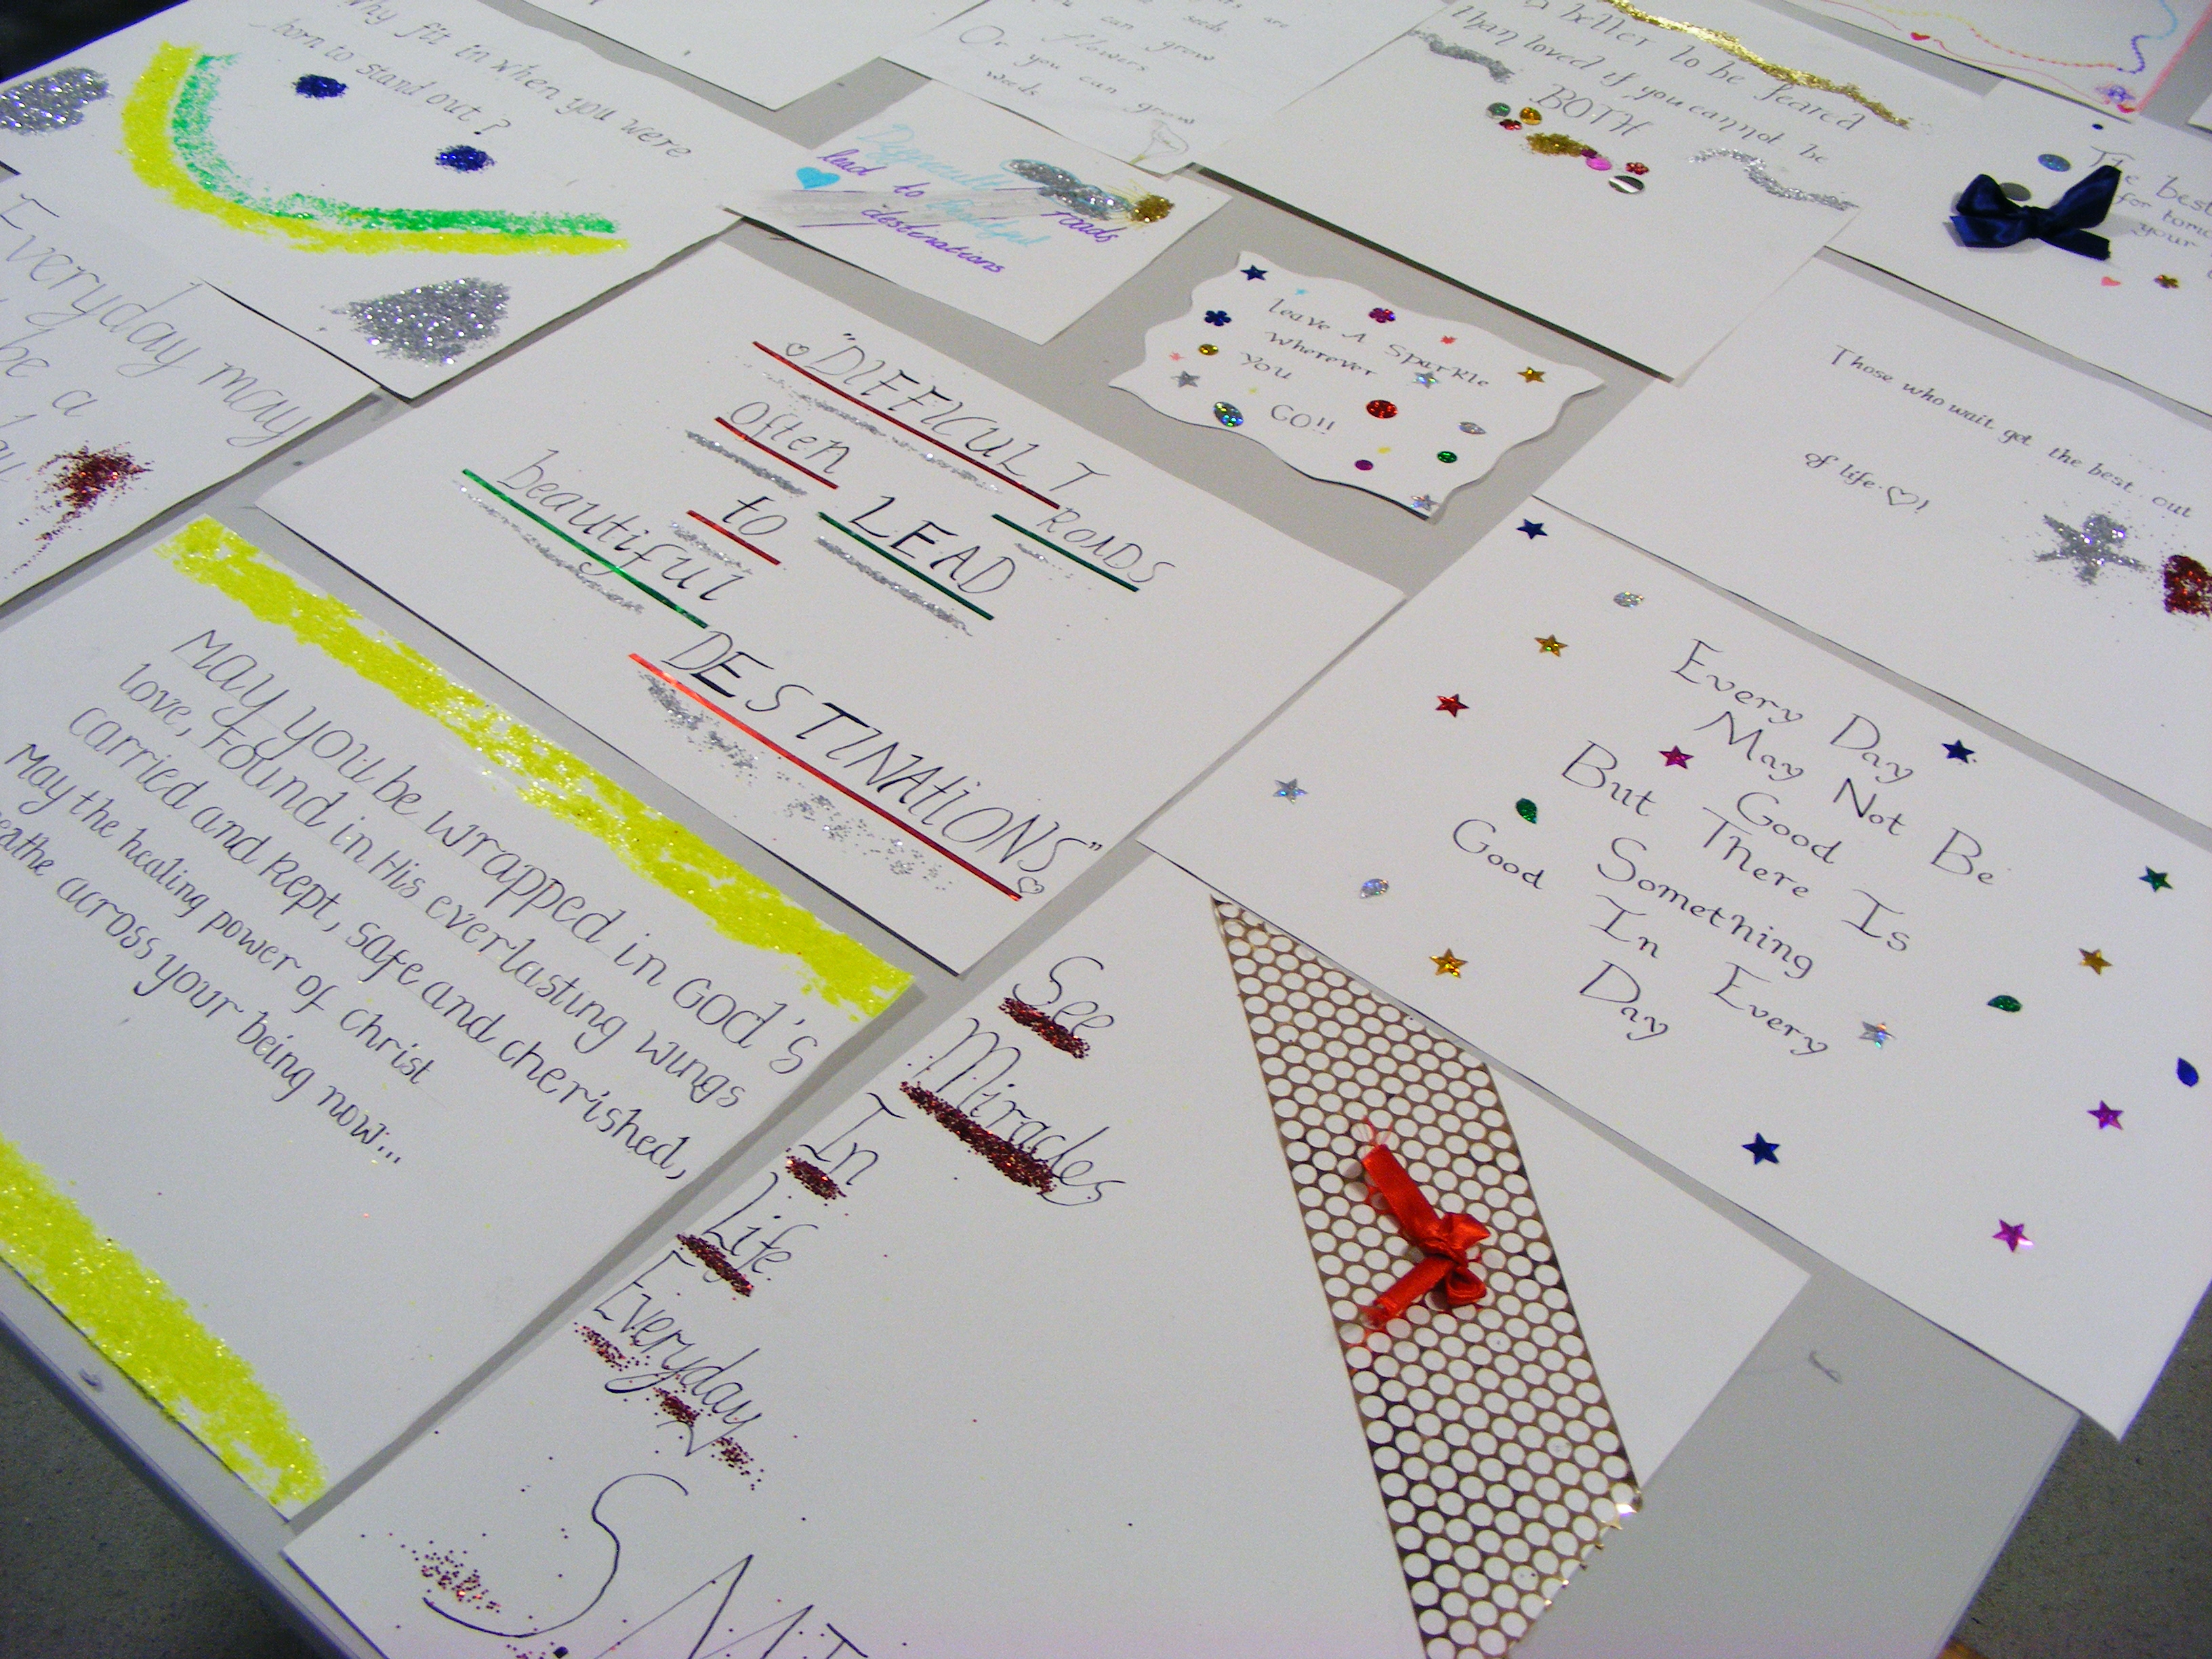 Why fit in when you were
born to stand out?
seeds
can grow
flowers
Or you can grow
weeds
better to be feared
than loved if you cannot be
BOTH
The best
for
your
Difficult roads
lead to beautiful
destinations
Everyday may
be a
Leave A Sparkle
Wherever
You
GO!!
Those who wait get the best out
of life ♡!
♡ "DIFFICULT
ROADS
Often
LEAD
to
beautiful
DESTINATIONS" ♡
Every Day
May Not Be
Good
But There Is
Something
Good In Every
Day
May you be wrapped in GOD's
love, Found in His everlasting wings
carried and kept, safe and cherished,
May the healing power of christ
across your being now...
See
Miracles
In
Life
Everyday